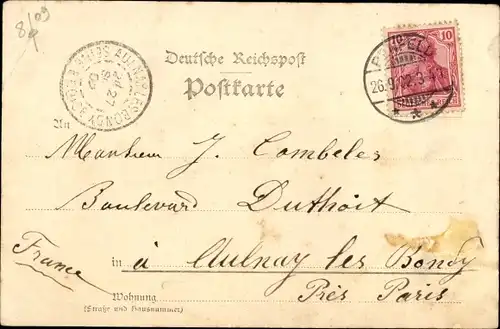 8/09
Deutsche Reichspost
Postkarte
10
An
Monsieur J. Combeles
Boulevard Duthoit
in à Aulnay les Bondy
France
Près Paris
Wohnung
(Straße und Hausnummer)